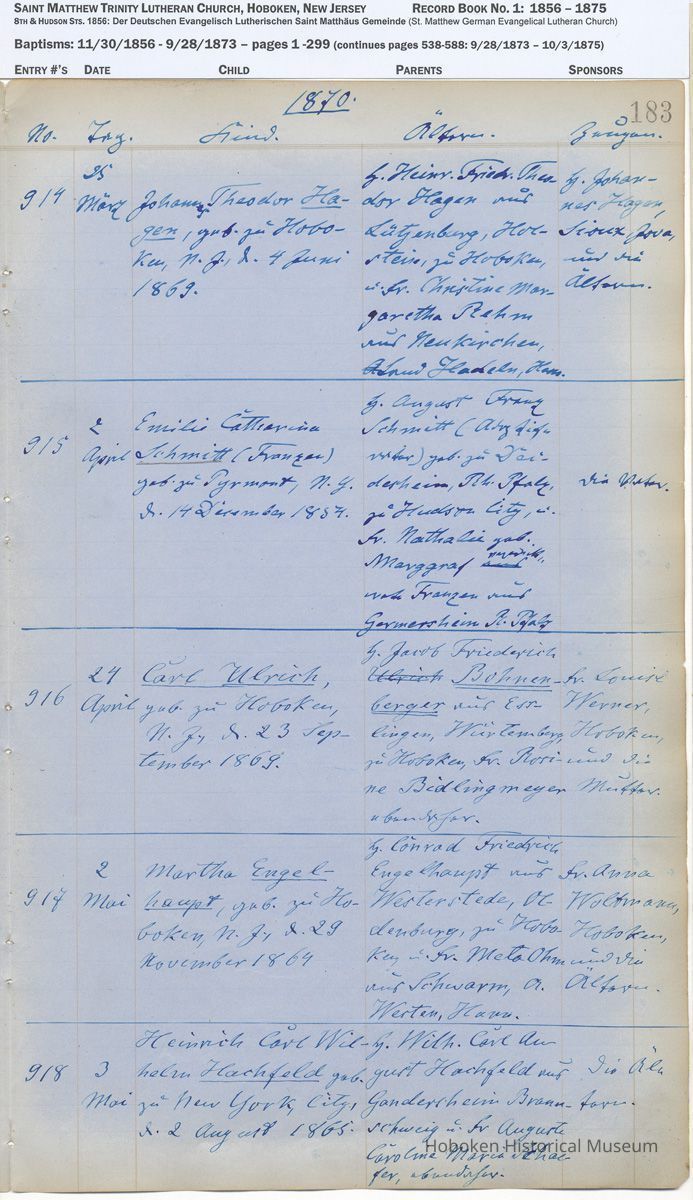 SAINT MATTHEW TRINITY LUTHERAN CHURCH, HOBOKEN, NEW JERSEY RECORD BOOK NO. 1: 1856 – 1875
8TH & HUDSON STS. 1856: Der Deutschen Evangelisch Lutherischen Saint Matthäus Gemeinde (St. Matthew German Evangelical Lutheran Church)
Baptisms: 11/30/1856 - 9/28/1873 – pages 1 -299 (continues pages 538-588: 9/28/1873 – 10/3/1875)
ENTRY #'S DATE CHILD PARENTS SPONSORS
1870.
183
No. Tag. Kind. Ältern. Zeugen.
914
25
März
Johann Theodor Ha-
gen, geb. zu Hobo-
ken, N. J., d. 4 Juni
1869.
H. Heinr. Friedr. Theo-
dor Hagen aus
Lütjenburg, Hol-
stein, zu Hoboken,
u. Fr. Christine Mar-
garetha Rehm
aus Neukirchen,
Hadeln, Hann.
H. Johan-
nes Hagen,
Sioux, Iowa,
und die
Ältern.
915
2
April
Emilie Catharina
Schmitt (Franzen)
geb. zu Pyrmont, N. Y.
d. 14 December 1854.
H. August Franz
Schmitt (
vater) geb. zu
derheim, Rh. Pfalz,
zu Hudson City, u.
Fr. Nathalie geb.
Marggraf
Franzen aus
Germersheim R. Pfalz
Die Mutter.
916
24
April
Carl Ulrich,
geb. zu Hoboken,
N. J., d. 23 Sep-
tember 1869.
H. Jacob Friederich
Ulrich Bohnen-
berger aus Ess-
lingen, Würtemberg,
zu Hoboken, Fr. Rosi-
ne Bidlingmeyer
ebendaher.
Fr. Louise
Werner,
Hoboken,
und die
Mutter.
917
2
Mai
Martha Engel-
haupt, geb. zu Ho-
boken, N. J., d. 29
November 1864
H. Conrad Friedrich
Engelhaupt aus
Westerstede, Ol-
denburg, zu Hobo-
ken u. Fr. Meta Ohm
aus Schwarm, A.
Westen, Hann.
Fr. Anna
Woltmann,
Hoboken,
und die
Ältern.
918
3
Mai
Heinrich Carl Wil-
helm Hachfeld geb.
zu New York, City,
d. 2 August 1865.
H. Wilh. Carl Au-
gust Hachfeld aus
Gandersheim Braun-
schweig u. Fr Auguste
Caroline Maria Schae-
fer, ebendaher.
Die Äl-
tern.
Hoboken Historical Museum